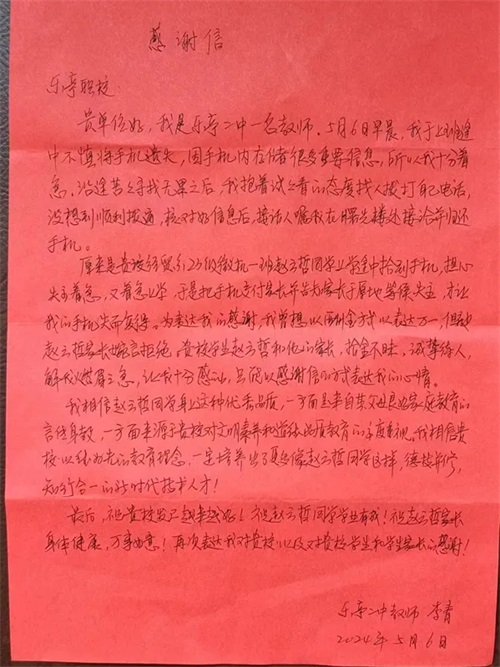 感谢信
乐亭职校:
贵单位好,我是乐亭二中一名教师。5月6日早晨,我于上班途
中不慎将手机遗失,因手机内存储很多重要信息,所以我十分着
急,沿途苦苦寻找无果之后,我抱着试试看的态度找人拨打自己电话,
没想到顺利拨通,核对好信息后,接话人嘱我在 接洽并归还
手机。
原来是贵校 23级微机一班赵云哲同学上学途中拾到手机,担心
失主着急,又着急上学,于是把手机交付家长并告知家长于原地等候失主,才让
我的手机失而复得。为表达我的感谢,我曾想以 以表达万一,但被
赵云哲家长婉言拒绝。贵校学生赵云哲和他的家长,拾金不昧,诚挚待人,
解我燃眉之急,让我十分感动,只能以感谢信的方式表达我的心情。
我相信赵云哲同学身上这种优秀品质,一方面是来自其父母良好家庭教育的
言传身教,一方面来源于贵校对文明素养和道德品质教育的高度重视。我相信贵
校以 的教育理念,一定培养出更多像赵云哲同学这样,德技并修,
知行合一的新时代技术人才!
最后,祝贵校发展越来越好!祝赵云哲同学学业有成!祝赵云哲家长
身体健康,万事如意!再次表达我对贵校以及对贵校学生和学生家长的感谢!
乐亭二中教师 李青
2024年5月6日